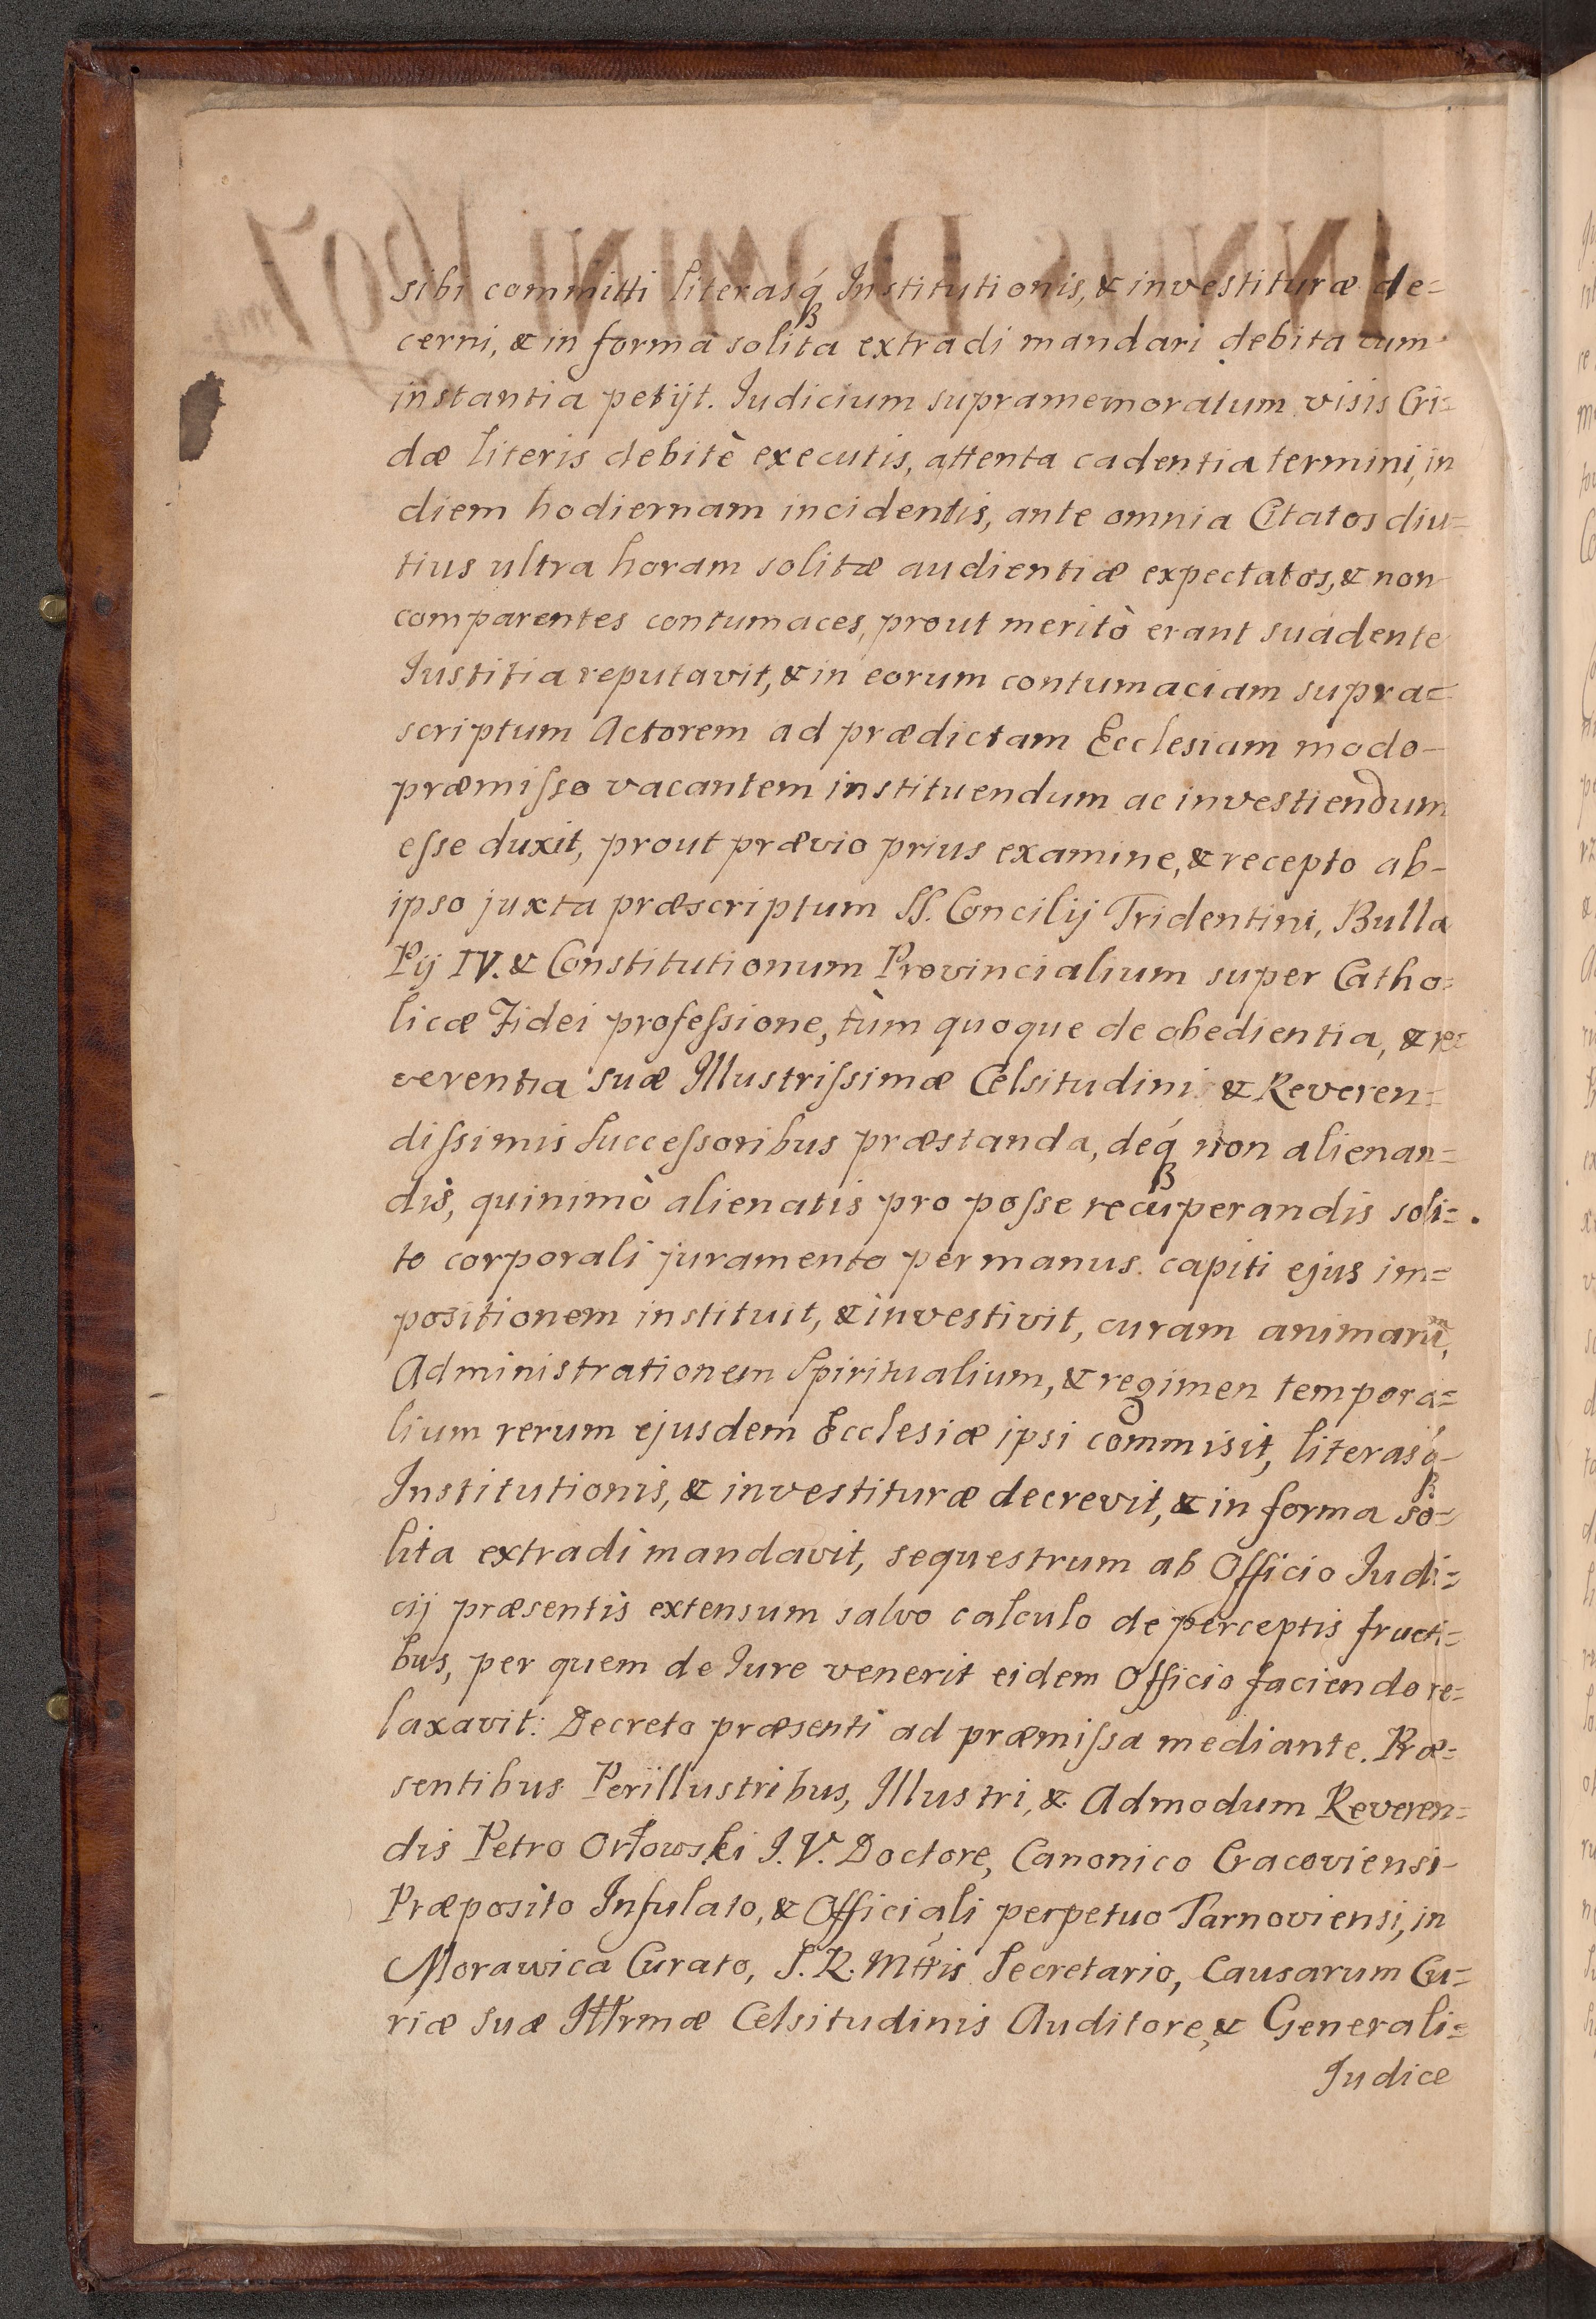 sibi committi literasq́ꝫ Institutionis, & investituræ de=
cerni, & in forma solita extradi mandari debita cum
instantia petijt. Iudicium supramemoratum visis Cri=
dæ literis debitè executis, attenta cadentia termini, in
diem hodiernam incidentis, ante omnia Citatos diu=
tius ultra horam solitæ audientiæ expectatos, & non
comparentes contumaces, prout meritò erant suadente
Iustitia reputavit, & in eorum contumaciam supra=
scriptum Actorem ad prædictam Ecclesiam modo-
præmiſso vacantem instituendum ac investiendum
eſse duxit, prout prævio prius examine, & recepto ab-
ipso juxta præscriptum SS. Concilij Tridentini, Bulla
Pij IV. & Constitutionum Provincialium super Catho=
licæ Fidei profeſsione, tùm quoque de obedientia, & re=
verentia suæ Illustriſsimæ Celsitudini & Reveren=
diſsimis Succeſsoribus præstanda, deq́ꝫ non alienan=
dis, quinimò alienatis pro poſse recuperandis soli=
to corporali juramento per manus capiti ejus im=
positionem instituit, & investivit, curam animarũ,
Administrationem Spiritualium, & regimen tempora=
lium rerum ejusdem Ecclesiæ ipsi commisit, literasq́ꝫ
Institutionis, & investituræ decrevit, & in forma so=
lita extradi mandavit, sequestrum ab Officio Judi=
cij præsentis extensum salvo calculo de perceptis fructi=
bus, per quem de Iure venerit eidem Officio faciendo re=
laxavit: Decreto præsenti ad præmiſsa mediante. Præ=
sentibus Perillustribus, Illustri, & Admodum Reveren=
dis Petro Orłowski I. V. Doctore, Canonico Cracoviensi
Præposito Infulato, & Officiali perpetuo Tarnoviensi, in
Morawica Curato, S. R. Mttis Secretario, Causarum Cu=
riæ suæ Illrmæ Celsitudinis Auditore, & Generali=
Judice
ANNUS DOMINI 1697